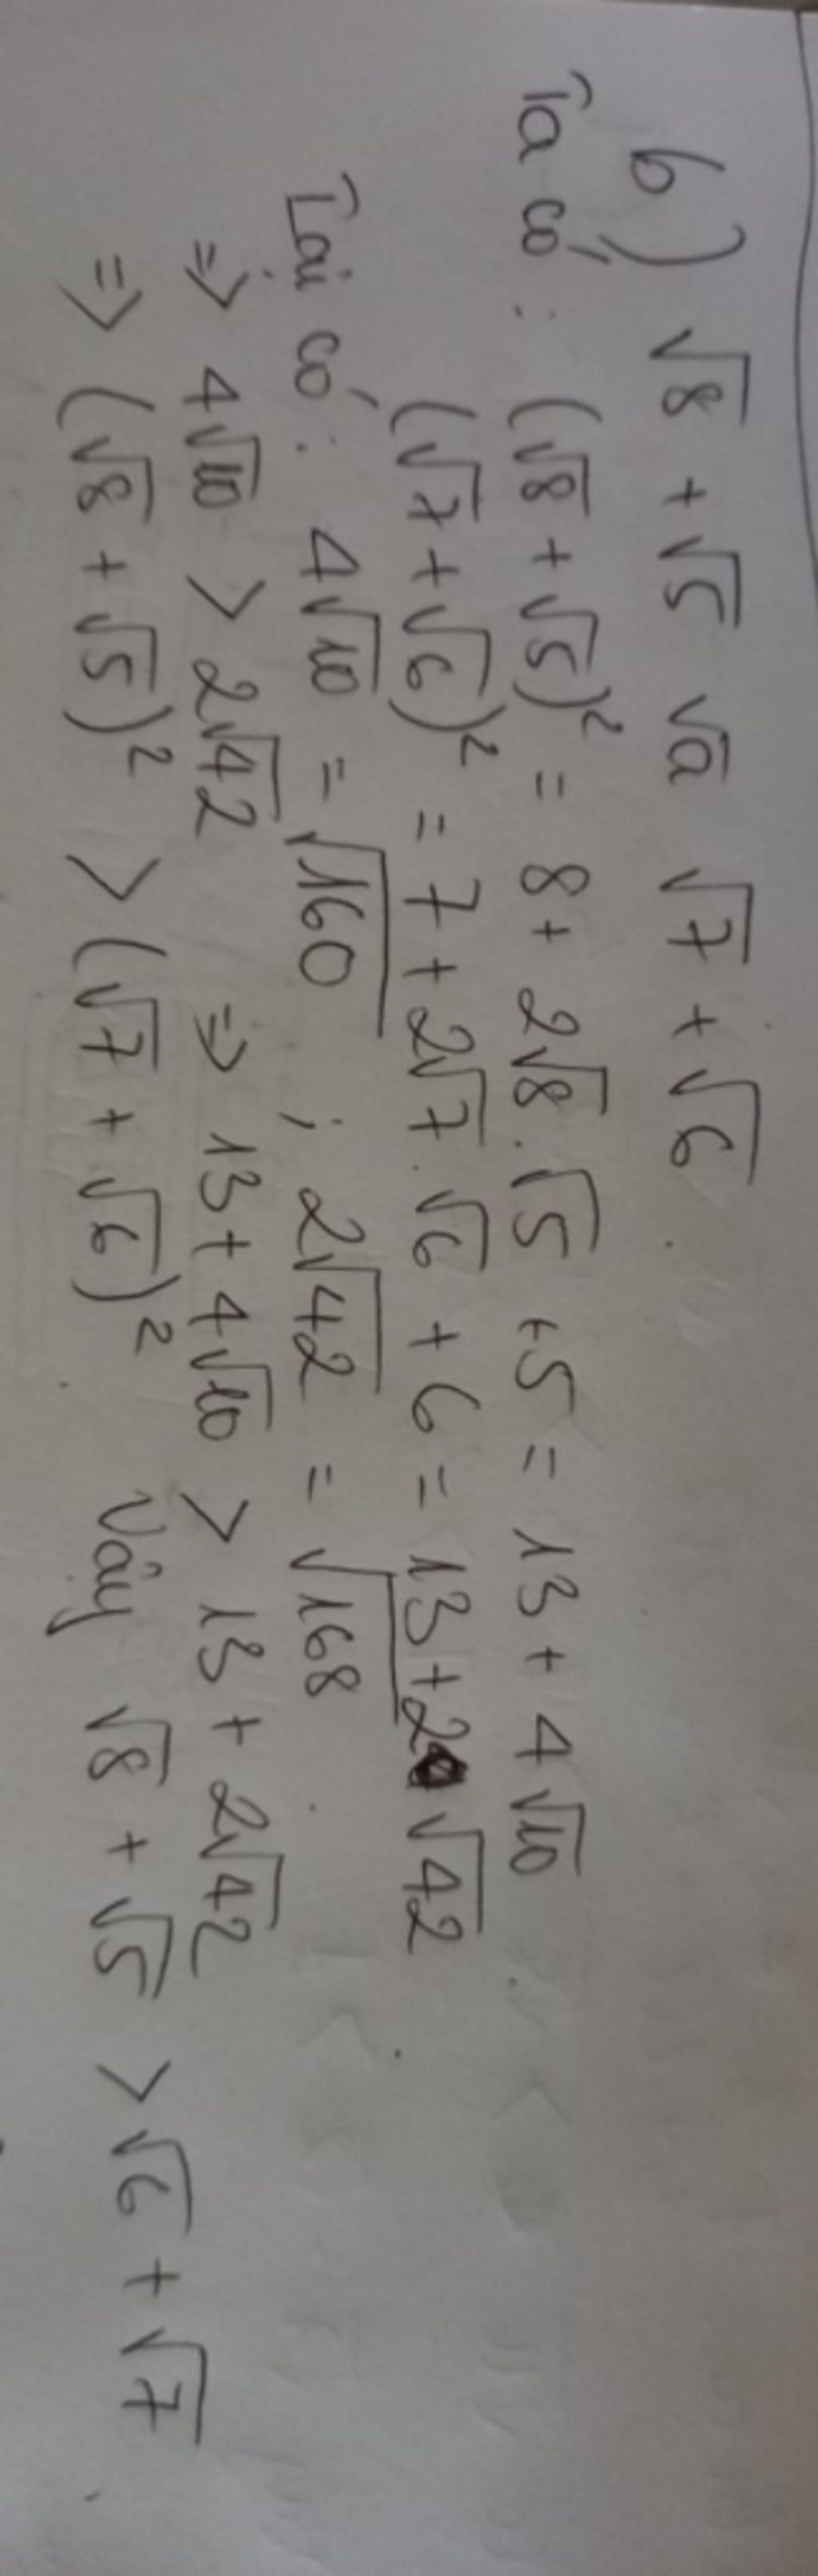 b) √8 + √5 và √7 + √6.
Ta có: (√8 + √5)² = 8 + 2√8.√5 + 5 = 13 + 4√10
(√7 + √6)² = 7 + 2√7.√6 + 6 = 13 + 2√42
Lại có: 4√10 = √160 ; 2√42 = √168
=> 4√10 > 2√42 => 13 + 4√10 > 13 + 2√42
=> (√8 + √5)² > (√7 + √6)² Vậy √8 + √5 > √6 + √7